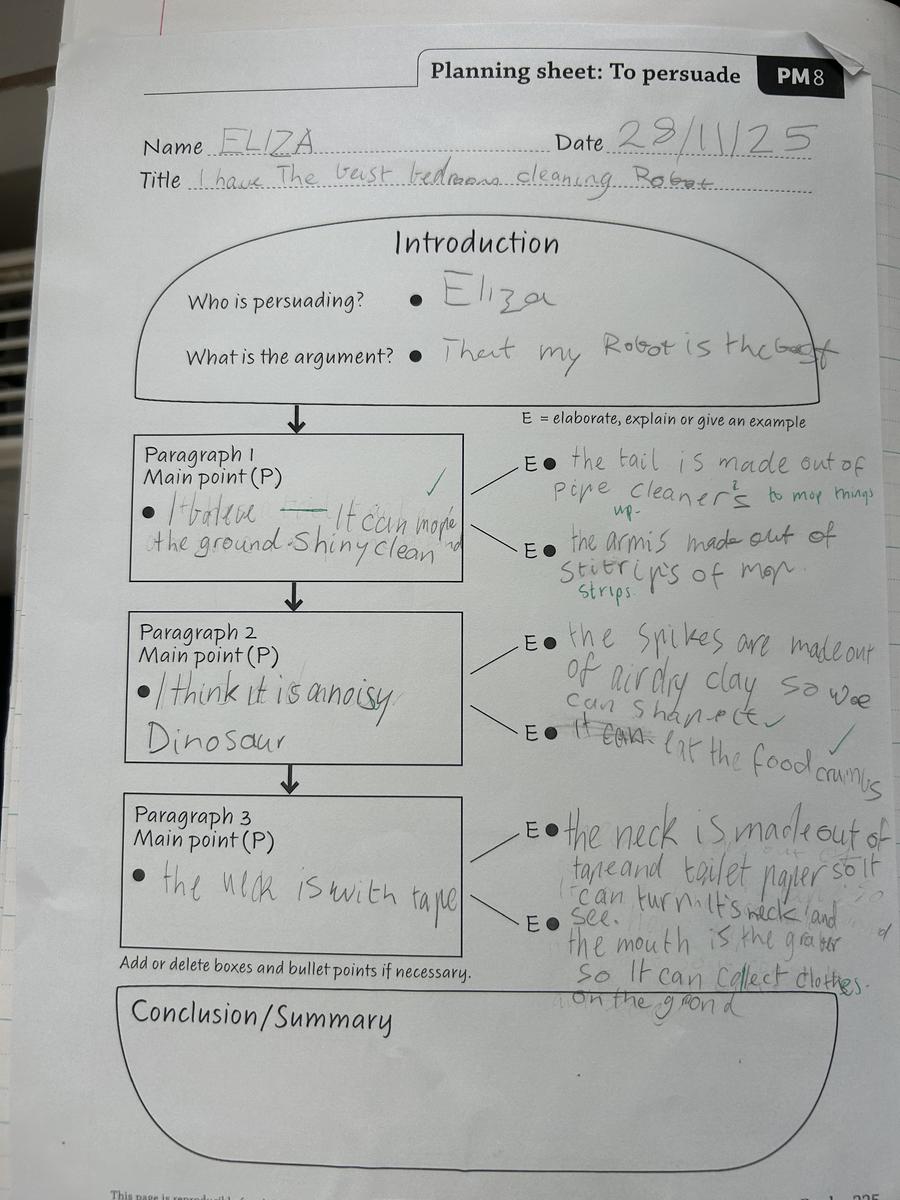 Planning sheet: To persuade PM 8
Name ELIZA Date 28/11/25
Title I have The beist bedrooms cleaning Robot
Introduction
Who is persuading? • Eliza
What is the argument? • That my Robot is the best
E = elaborate, explain or give an example
Paragraph 1
Main point (P)
• It can mope
the ground. Shiny clean
E • the tail is made out of
pipe cleaner's to mop things
up.
E • the arm is made out of
of mop.
strips
Paragraph 2
Main point (P)
• I think it is a noisy
Dinosaur
E • the spikes are made out
of air dry clay so we
can shape it
E • It can eat the food crumbs
Paragraph 3
Main point (P)
• the neck is with tape
E • the neck is made out of
tape and tailet paper so It
can turn It's neck and
E • see.
the mouth is the graber
so It can collect clothes.
on the grond
Add or delete boxes and bullet points if necessary.
Conclusion/Summary
This page is